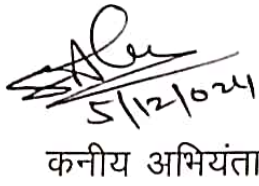 5/12/024
कनीय अभियंता